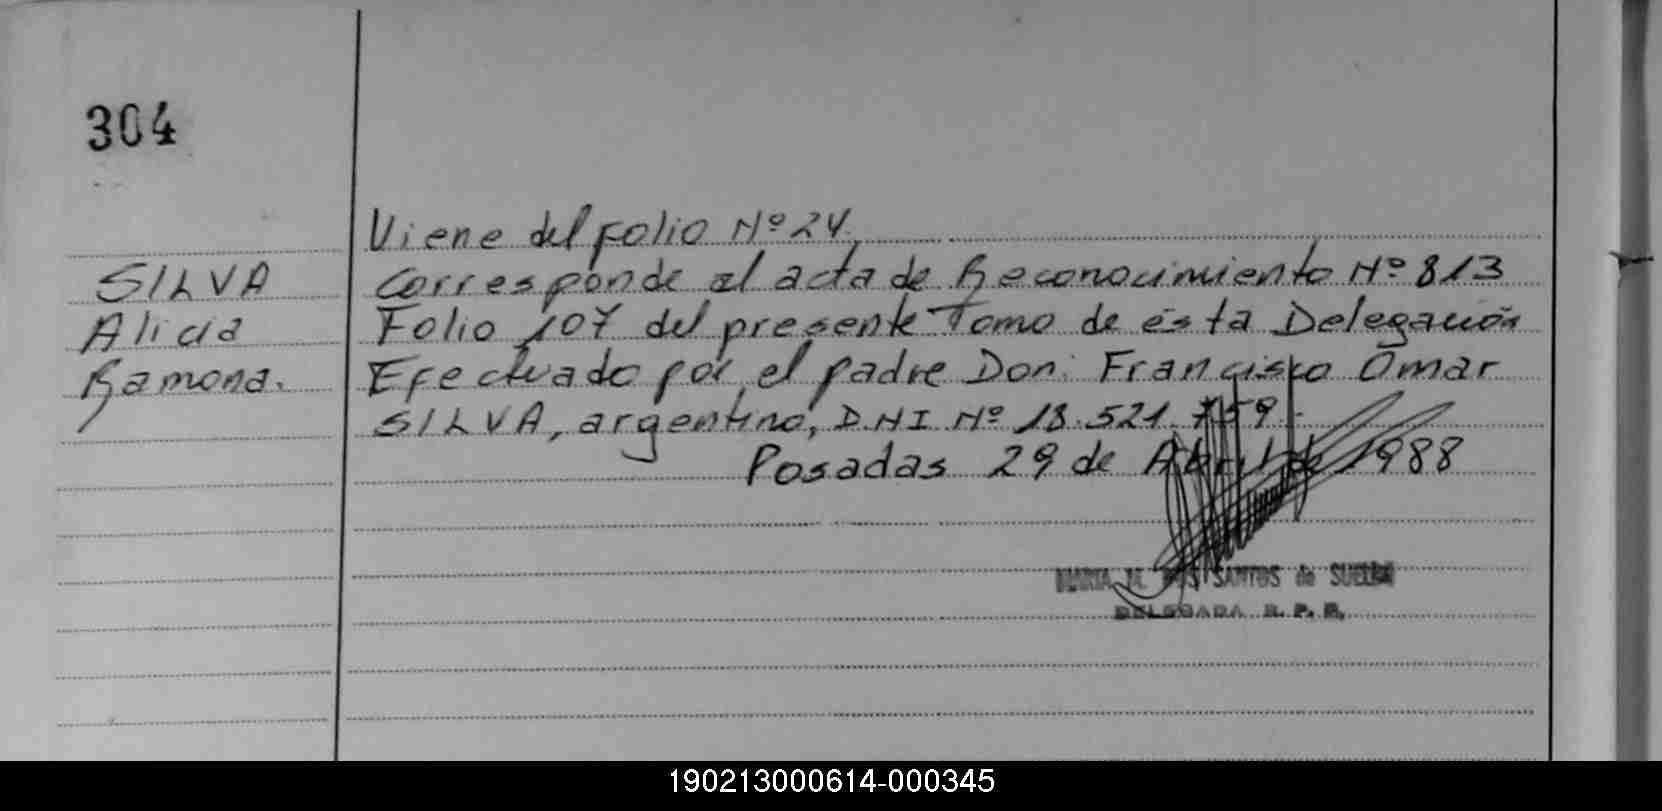 304
Viene del folio Nº 24.
SILVA
Alicia
Ramona.
corresponde al acta de Reconocimiento Nº 813
Folio 107 del presente Tomo de ésta Delegación
Efectuado por el padre Don: Francisco Omar
SILVA, argentino, D.N.I Nº 18.521.759.
Posadas 29 de Abril de 1988
MARIA M. DOS SANTOS de
DELEGADA R. P. P.
190213000614-000345